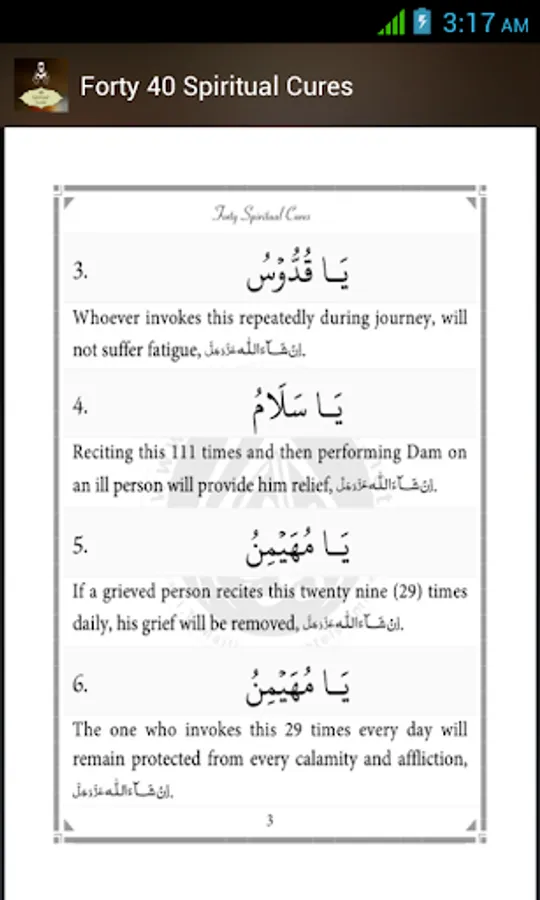 3:17 AM
Forty 40 Spiritual Cures
Forty Spiritual Cures
3. يَـا قُدُّوْسُ
Whoever invokes this repeatedly during journey, will
not suffer fatigue, اِنْ شَــآءَاللّٰه عَزَّوَجَلَّ.
4. يَـا سَلَامُ
Reciting this 111 times and then performing Dam on
an ill person will provide him relief, اِنْ شَــآءَاللّٰه عَزَّوَجَلَّ.
5. يَـا مُهَيْمِنُ
If a grieved person recites this twenty nine (29) times
daily, his grief will be removed, اِنْ شَــآءَاللّٰه عَزَّوَجَلَّ.
6. يَـا مُهَيْمِنُ
The one who invokes this 29 times every day will
remain protected from every calamity and affliction,
اِنْ شَــآءَاللّٰه عَزَّوَجَلَّ.
3